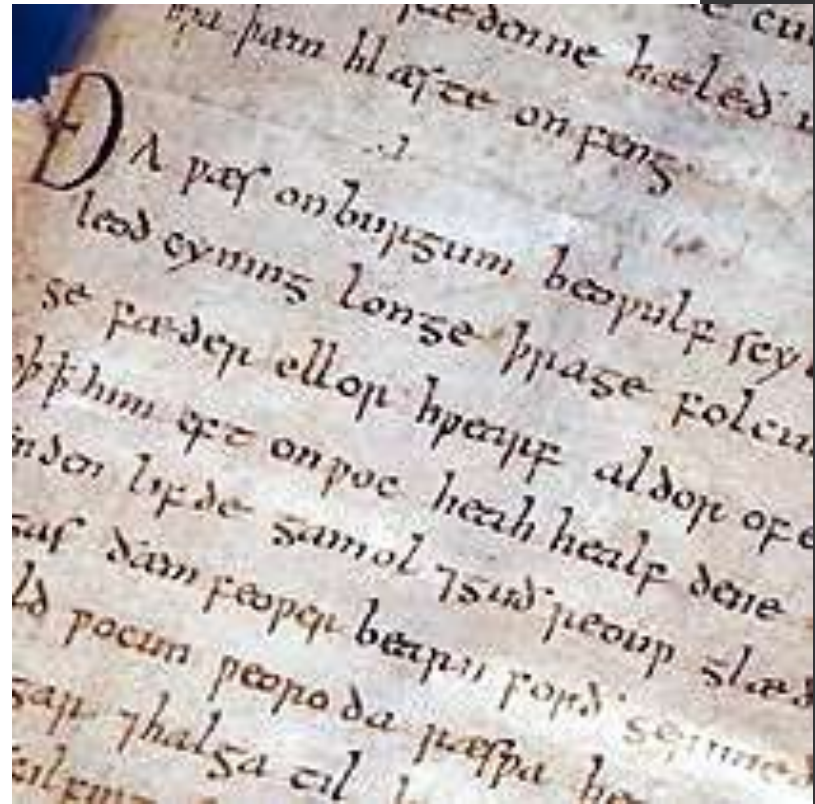 cun
rædenne hæleð
hƿa þam hlæste onfeng
.I.
ÐA ƿæs on burgum beoƿulf scyl
leod cyning longe þrage folcu
ge fæder ellor hƿearf aldor of e
oþ ꝥ him eft onƿoc heah healf dene
nden lifde gamol ⁊ guð reouƿ glæd
gas ðam feoƿer bearn forð gerimed
ld ƿocun ƿeoro da ræsƿa he
gar ⁊ halga til